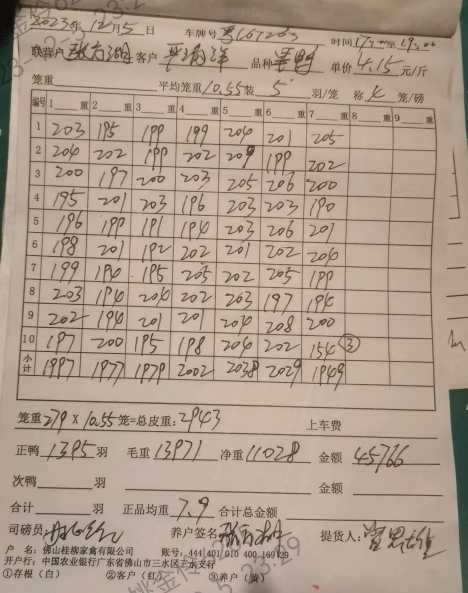 2023年12月5日 车牌号 时间17:00至19:00
联营户 客户 品种 单价4.15元/斤
笼重 平均笼重10.55装 5 羽/笼 称 K 笼/磅
编号 1 重 2 重 3 重 4 重 5 重 6 重 7 重 8 重 9 重
1 203 195 199 199 204 201 205
2 204 202 199 202 209 199 202
3 200 197 200 203 205 206 200
4 195 201 203 196 203 203 190
5 196 199 191 194 203 206 201
6 198 201 192 202 201 202 204
7 199 194 195 205 202 205 199
8 203 194 204 202 203 197 194
9 202 194 201 201 204 208 200
10 197 200 195 198 204 202 154 ③
小计 1997 1977 1979 2002 2038 2029 1949
笼重279×10.55笼=总皮重:2943 上车费
正鸭1395羽 毛重13971 净重11028 金额45766
次鸭 羽 金额
合计 羽 正品均重7.9 合计总金额
司磅员: 养户签名 提货人:
户 名:佛山桂柳家禽有限公司 账号:444 401 010 400 169129
开户行:中国农业银行广东省佛山市三水区三水支行
①存根(白) ②客户(红) ③养户(黄)